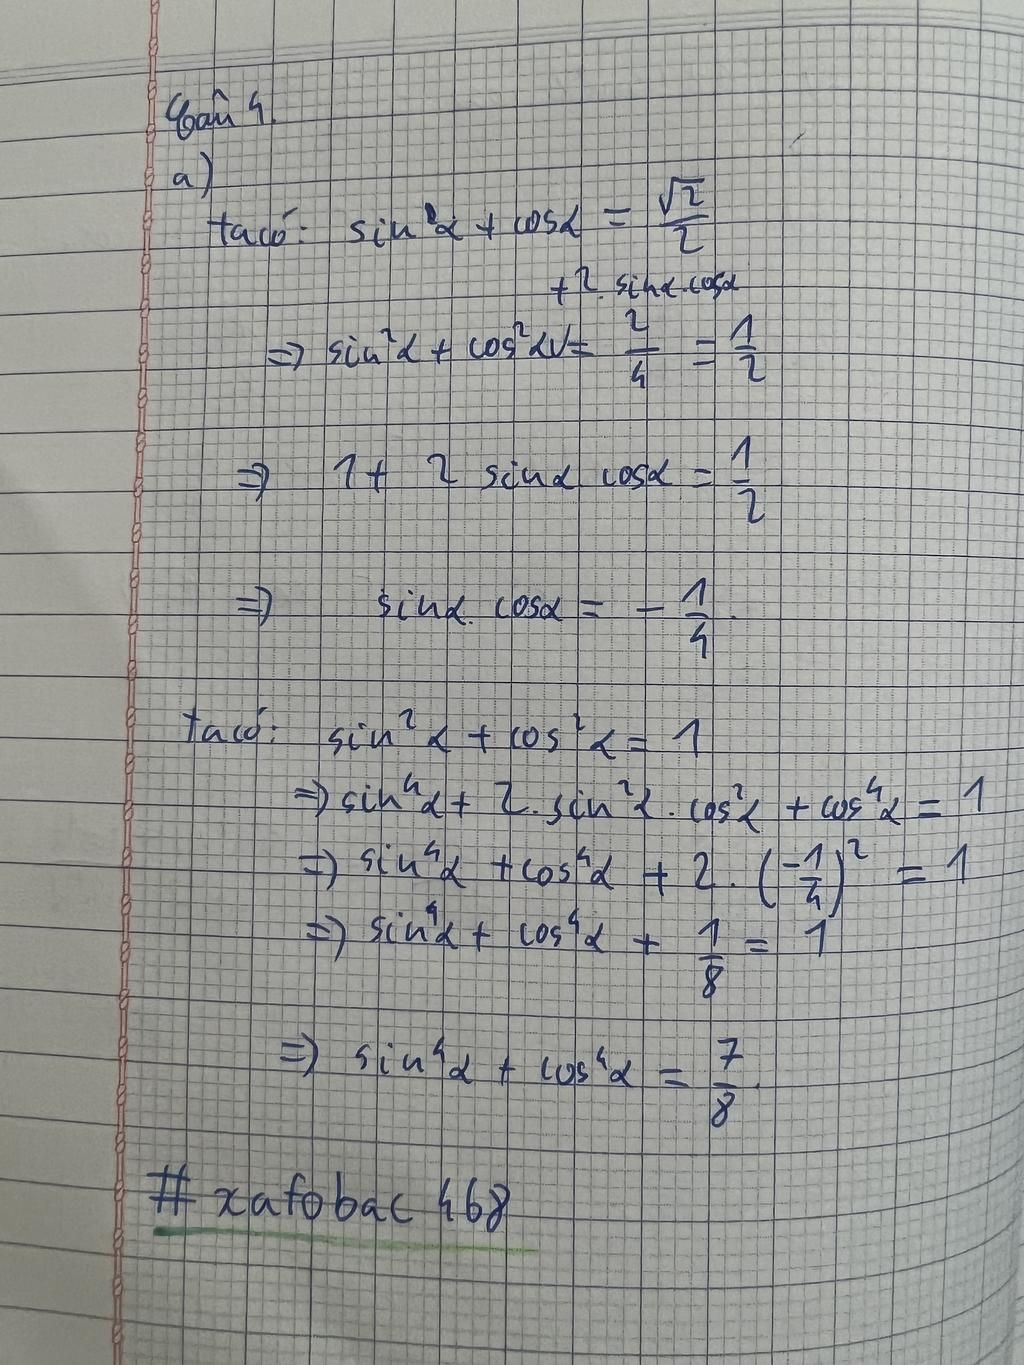 Câu 4.
a)
ta có: sin α + cosα = √2/2
+ 2. sinα.cosα
=> sin²α + cos²α V = 2/4 = 1/2
=> 1 + 2 sinα cosα = 1/2
=> sinα. cosα = - 1/4.
ta có: sin²α + cos²α = 1
=> sin⁴α + 2. sin²α. cos²α + cos⁴α = 1
=> sin⁴α + cos⁴α + 2. (-1/4)² = 1
=> sin⁴α + cos⁴α + 1/8 = 1
=> sin⁴α + cos⁴α = 7/8.
# xafobac 468